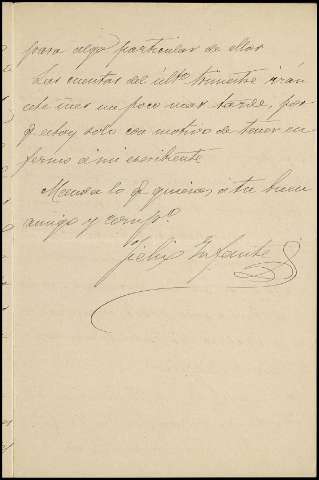 para algo particular de ellas
Las cuentas del últº trimestre irán
este mes un poco mas tarde, por
q estoy solo con motivo de tener en
fermo á mi escribiente
Manda lo q quieras, á tu buen
amigo y compº
Félix Infante